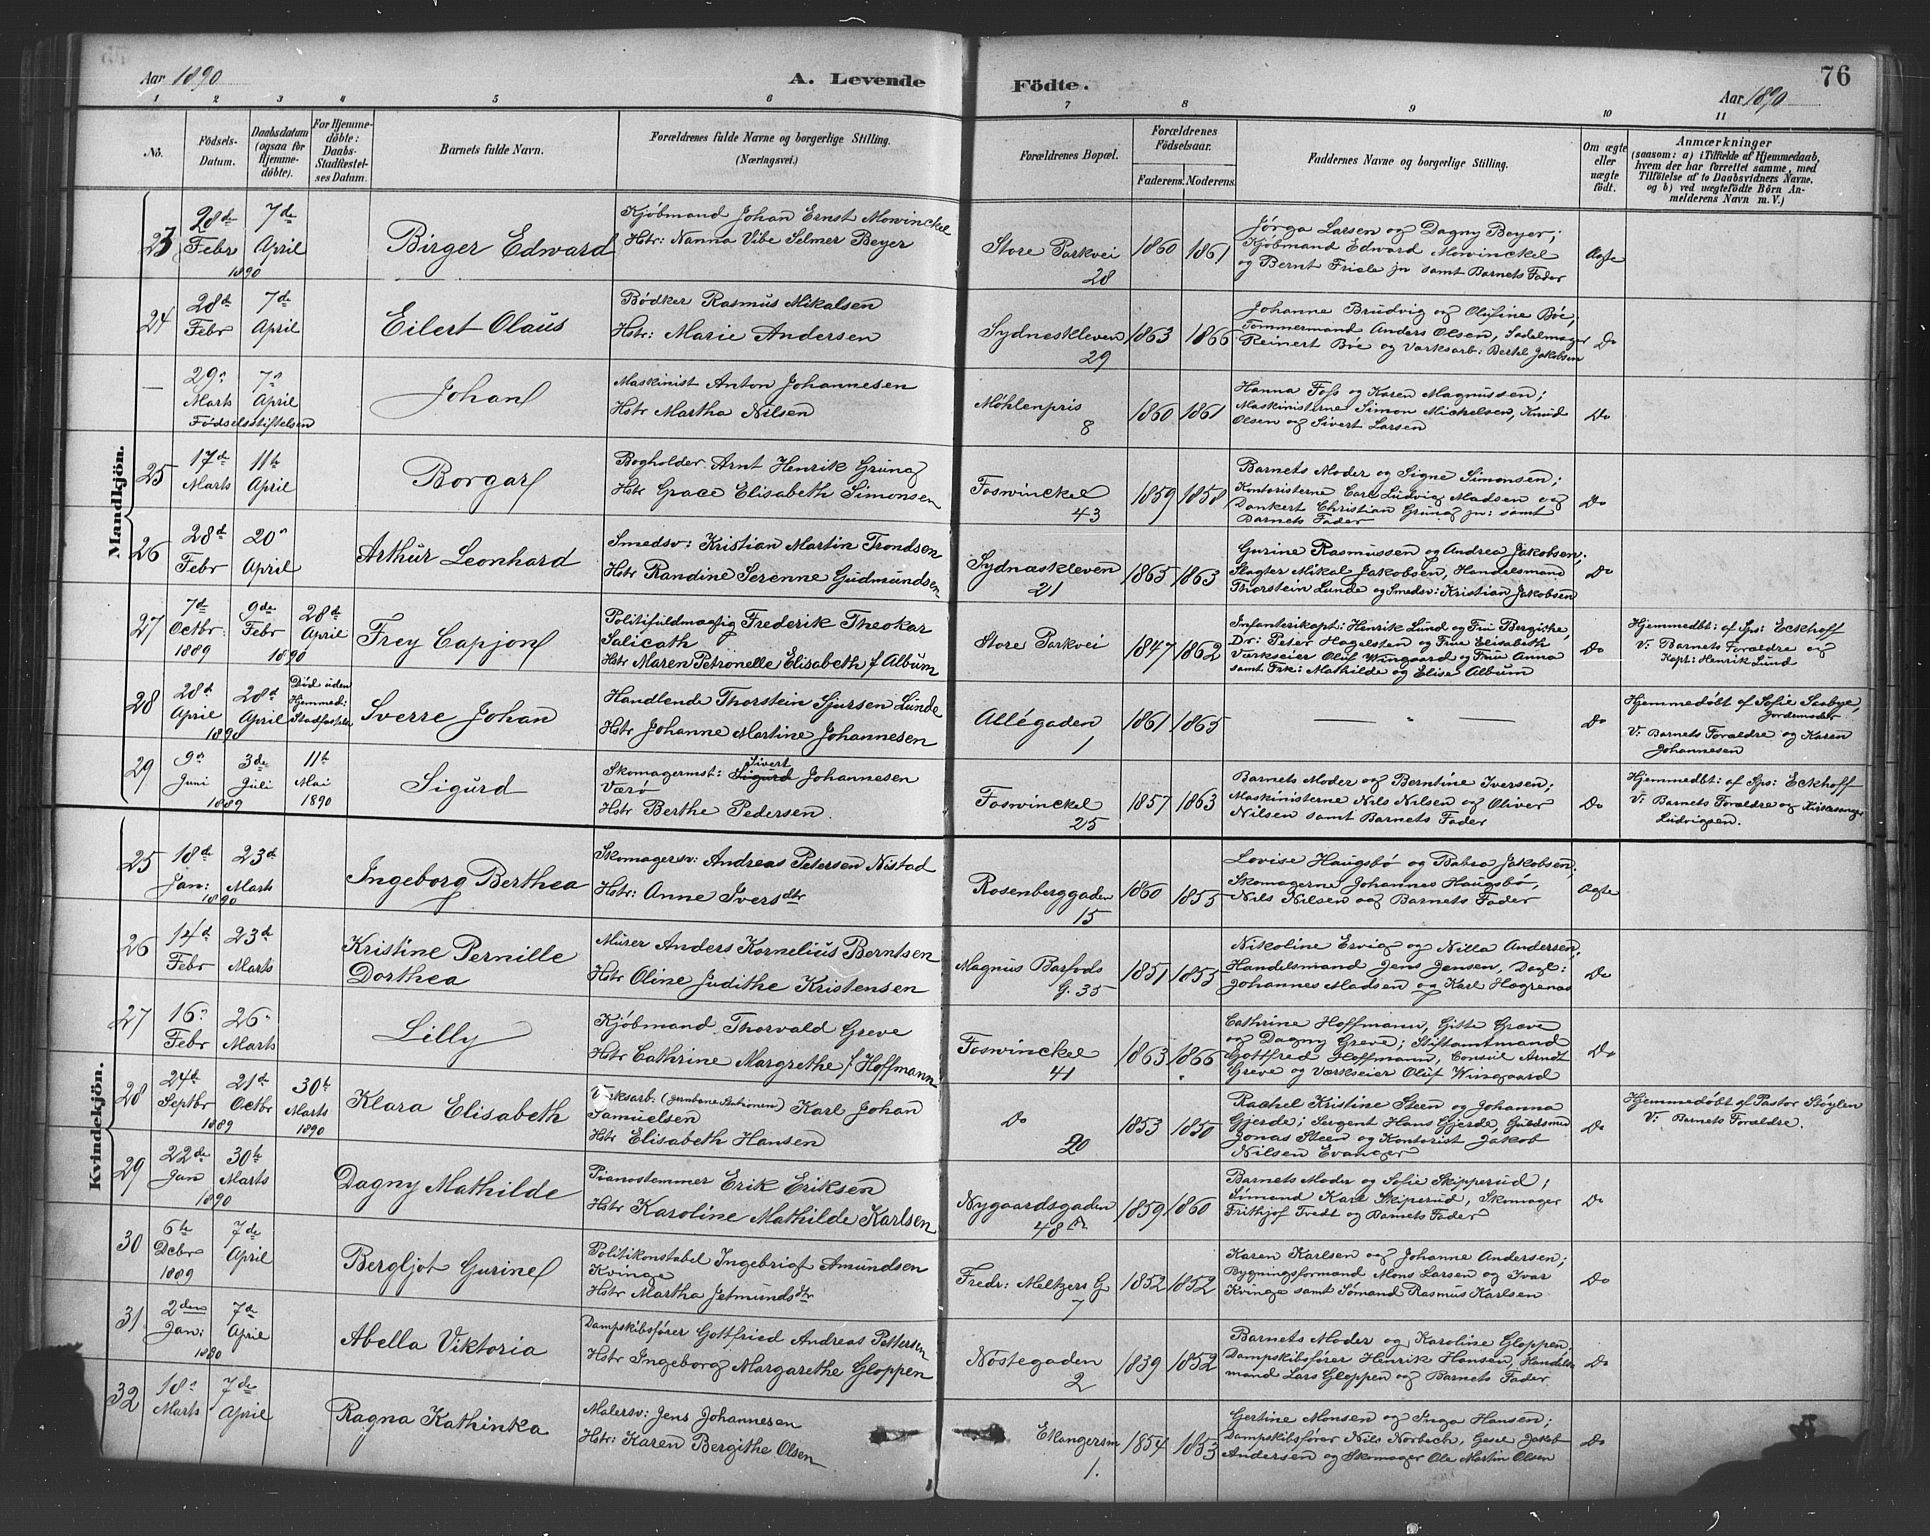 Aar 1890
A. Levende
Födte.
76
Aar 1890
1 2 3 4 5 6 7 8 9 10 11
No.
Födsels-
Datum.
Daabsdatum
(ogsaa for
Hjemme-
döbte).
For Hjemme-
döbte:
Daabs-
Stadfæstel-
ses Datum.
Barnets fulde Navn.
Forældrenes fulde Navne og borgerlige Stilling.
(Næringsvei.)
Forældrenes Bopæl.
Forældrenes
Födselsaar.
Faderens. Moderens.
Faddernes Navne og borgerlige Stilling.
Om ægte
eller
uægte
födt.
Anmærkninger
(saasom: a) i Tilfælde af Hjemmedaab,
hvem der har forrettet samme, med
Tilföielse af to Daabsvidners Navne,
og b) ved uægtefödte Börn An-
melderens Navn m. V.)
Mandkjön.
23
28de
Febr
7de
April
1890
Birger Edward
Kjöbmand Johan Ernst Mowinckel
Hstr: Nanna Vibe Selmer Beyer
Store Parkvei
28
1860 1861
Jørga Larsen og Dagny Beyer;
Kjöbmand Edward Mowinckel
og Bernt Friele jn samt Barnets Fader
Ægte
24
28de
Febr
7de
April
Eilert Olaus
Bødker Rasmus Mikalsen
Hstr: Marie Andersen
Sydneskleven
29
1863 1866
Johanne Brudvig og Olufine Bøe;
Tømmermand Anders Olsen, Sadelmager
Reinert Bøe og Værksarb: Bertel Jakobsen
Do
—
29"
Marts
7"
April
Födselsstiftelsen
Johan
Maskinist Anton Johannesen
Hstr Martha Nilsen
Møhlenpris
8
1860 1861
Hanna Foss og Karen Magnussen;
Maskinisterne Simon Mickelsen, Knud
Olsen og Sivert Larsen
Do
25
17de
Marts
11te
April
Borgar
Bogholder Arnt Henrik Grung
Hstr: Grace Elisabeth Simonsen
Foswinckel
43
1859 1858
Barnets Moder og Signe Simonsen;
Kontoristerne Carl Ludvig Madsen og
Dankert Christian Grung jn: samt
Barnets Fader
Do
26
28de
Febr
20"
April
Arthur Leonhard
Smedsv: Kristian Martin Trondsen
Hstr Randine Serenne Gudmundsen
Sydnæskleven
21
1865 1863
Gurine Rasmussen og Andrea Jakobsen;
Slagter Mikal Jakobsen, Handelsmand
Thorstein Lunde og Smedsv: Kristian Jakobsen
Do
27
7de
Octbr:
1889
9de
Febr
28de
April
1890
Frey Capjon
Politifuldmægtig Frederik Theokar
Salicath
Hstr Maren Petronelle Elisabeth f Album
Store Parkvei
1847 1862
Infanterikapt: Henrik Lund og Fru Bergithe,
Dr: Peter Hagelsten og Frue Elisabeth
Værkseier Oluf Wingaard og Frue Anna
samt Frk: Mathilde og Elise Album
Do
Hjemmedbt: af Sps: Eckhoff
V: Barnets Forældre og
Kapt: Henrik Lund
28
28de
April
28de
April
1890
Död uden
Hjemmed:
Stadfæstelse
Sverre Johan
Handlende Thorstein Sjursen Lunde
Hstr Johanne Martine Johannesen
Allégaden
1
1861 1865
— " —
Do
Hjemmedøbt af Sofie Saabye,
Jordemoder
V: Barnets Forældre og Karen
Johannesen
29
9"
Juni
3de
Juli
1889
11te
Mai
1890
Sigurd
Sivert
Skomagermst: Sigurd Johannesen
Værø
Hstr Berthe Pedersen.
Foswinckel
25
1857 1863
Barnets Moder og Berntine Iversen;
Maskinisterne Nils Nilsen og Oliver
Nilsen samt Barnets Fader
Do
Hjemmedbt: af Sps: Eckhoff
V: Barnets Forældre og Kirkesanger
Ludvigsen.
Kvindekjön.
25
18de
Jan:
23de
Marts
1890
Ingeborg Berthea
Skomagersv: Andreas Petersen Nistad
Hstr: Anne Iversdtr
Rosenberggaden
15
1860 1855
Lovise Haugsbø og Babra Jakobsen;
Skomagerne Johannes Haugsbø,
Nils Nilsen og Barnets Fader
Ægte
26
14de
Febr
23de
Marts
Kristine Pernille
Dorthea
Murer Anders Kornelius Berntsen
Hstr Oline Judithe Kristensen
Magnus Barfods
G. 35
1851 1853
Nikoline Ervig og Nilla Andersen;
Handelsmand Jens Jensen, Dagl:
Johannes Madsen og Karl Høgrenæs
Do
27
16"
Febr
26"
Marts
Lilly
Kjöbmand Thorvald Greve
Hstr Cathrine Margrethe f Hoffmann
Foswinckel
41
1863 1866
Cathrine Hoffmann, Gitte Greve
og Dagny Greve; Stiftsamtmand
Gottfred Hoffmann, Consul Arndt
Greve og Værkseier Oluf Wingaard
Do
28
24de
Septbr
21de
Octbr
1889
30te
Marts
1890
Klara Elisabeth
Værksarb: (Jernbane Stationen) Karl Johan
Samuelsen
Hstr Elisabeth Hansen
Do
20
1853 1850
Rachel Kristine Steen og Johanna
Gjerde; Sergent Hans Gjerde, Guldsmed
Jonas Steen og Kontorist Jakob
Nilsen Evanger
Do
Hjemmedøbt af Pastor Støylen
V: Barnets Forældre.
29
22de
Jan
30te
Marts
1890
Dagny Mathilde
Pianostemmer Erik Eriksen
Hstr Karoline Mathilde Karlsen
Nygaardsgaden
48 A
1859 1860
Barnets Moder og Sofie Skipperud;
Sömand Karl Skiperud, Skomager
Frithjof Tvedt og Barnets Fader
Do
30
6te
Decbr
1889
7de
April
Bergljot Gurine
Politikonstabel Ingebrigt Amundsen
Kvinge
Hstr Martha Jetmundsdtr
Fredr: Meltzers G
7
1852 1852
Karen Karlsen og Johanne Andersen;
Bygningsformand Mons Larsen og Ivar
Kvinge samt Sømand Rasmus Karlsen
Do
31
2den
Jan:
7de
April
1890
Abella Viktoria
Dampskibsfører Gottfried Andreas Pettersen
Hstr Ingeborg Margarethe Gloppen
Nøstegaden
2
1839 1852
Barnets Moder og Karoline Gloppen,
Dampskibsfører Henrik Hansen, Handels
mand Lars Gloppen og Barnets Fader
Do
32
18"
Marts
7de
April
Ragna Kathinka
Malersv: Jens Johannesen
Hstr: Karen Bergithe Olsen
Ekangersm
1.
1854 1853
Gertine Monsen og Inga Hansen;
Dampskibsfører Nils Norbech, Gesel Jakob
Andersen og Skomager Ole Martin Olsen
Do